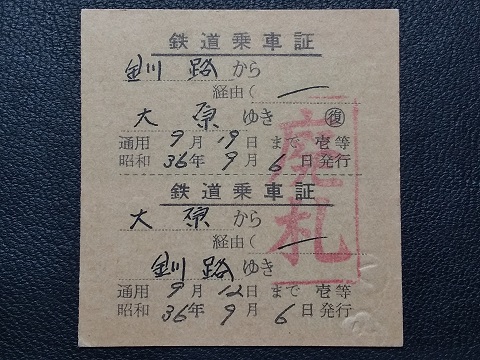 鉄道乗車証
釧路から
経由(ー
大原ゆき 復
通用9月19日まで壱等
昭和36年9月6日発行
鉄道乗車証
大原から
経由(ー
釧路ゆき
通用9月12日まで壱等
昭和36年9月6日発行
廃札